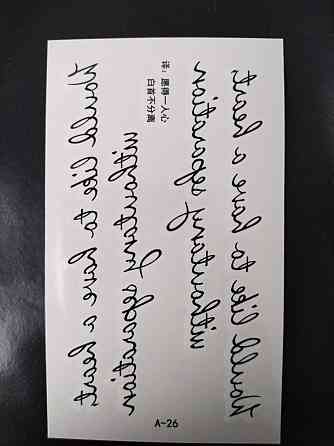 Would like to have a heart
separation
译：愿得一人心
白首不分离
Would like to have a heart
separation
A-26